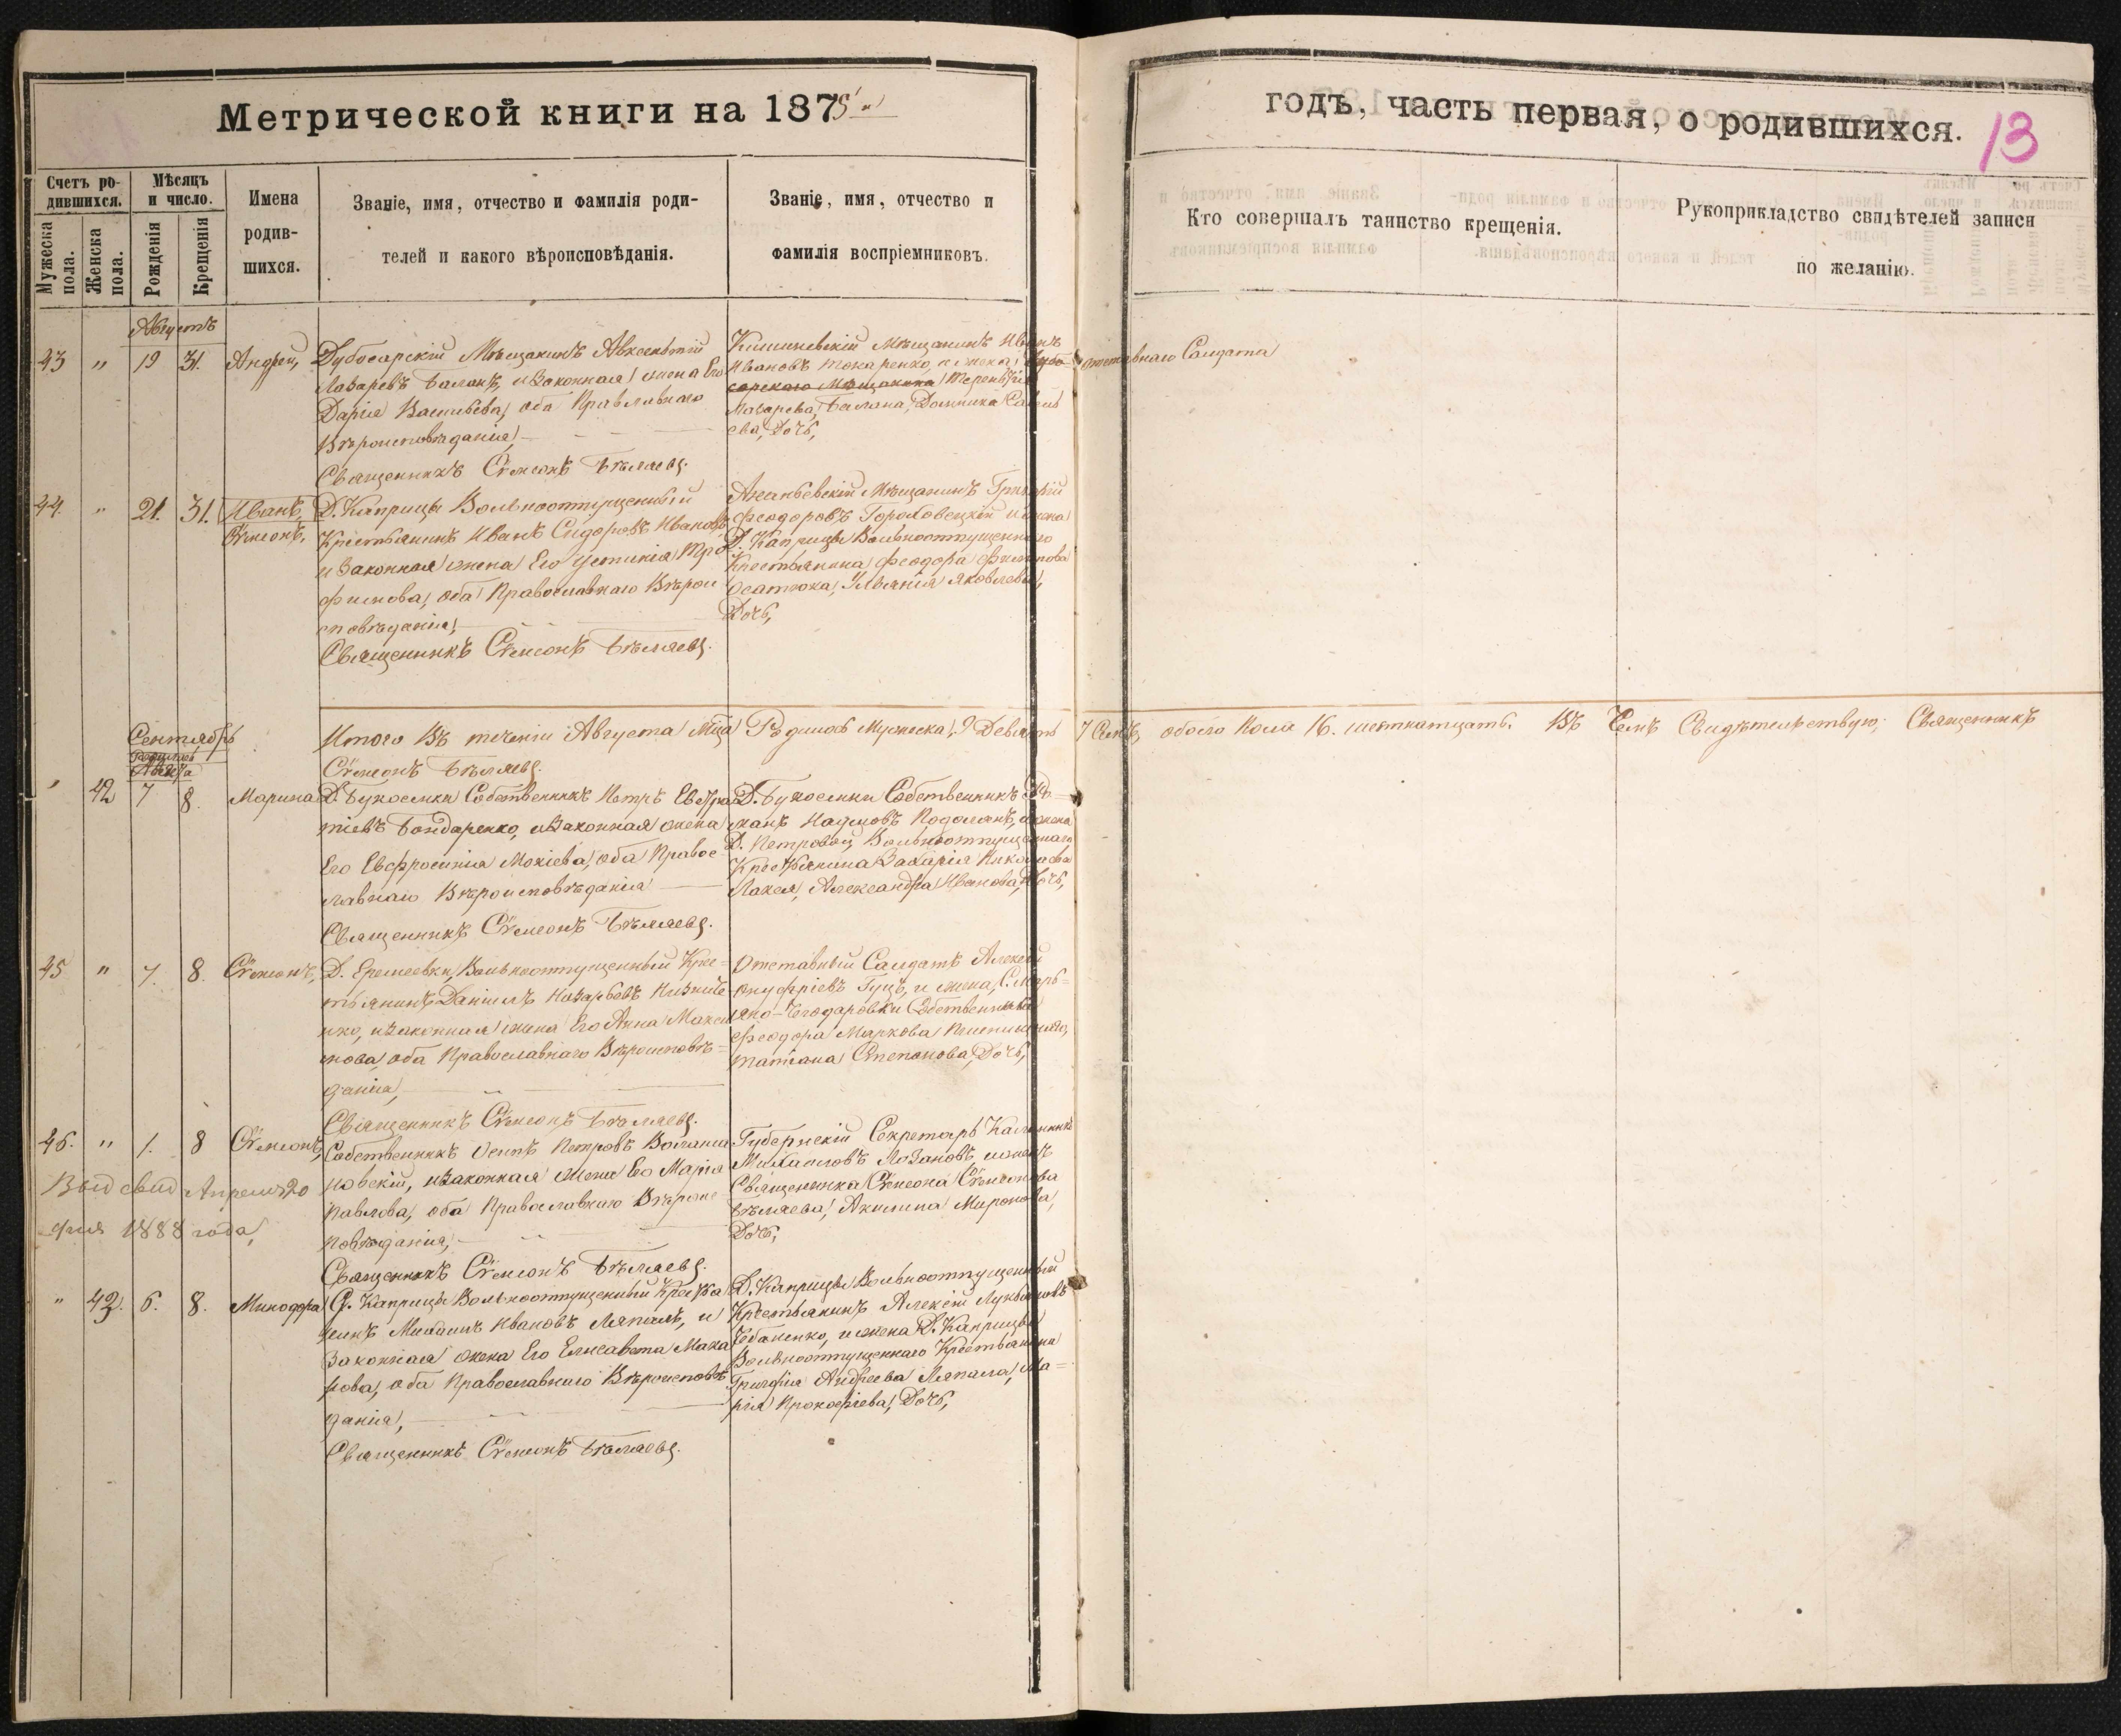 Метрической книги на 1875 й
годъ, часть первая, о родившихся.
13
Счетъ ро-
дившихся.
Мужеска
пола.
Женска
пола.
Мѣсяцъ
и число.
Рожденія
Крещенія
Имена
родив-
шихся.
Званіе, имя, отчество и фамилія роди-
телей и какого вѣроисповѣданія.
Званіе, имя, отчество и
фамилія воспріемниковъ.
Кто совершалъ таинство крещенія.
Рукоприкладство свидѣтелей записи
по желанію.
Августъ
43 " 19 31. Андрей,
Дубосарскій Мѣщанинъ Авксентій
Лазаревъ Баланъ, и Законная жена Его
Дарія Васильева, оба Православнаго
Вѣроисповѣданія,
Священникъ Сѵмеонъ Бѣляевъ.
Кишиневскій Мѣщанинъ Иванъ
Ивановъ Токаренко, и жена, Дубо- отставнаго Салдата
сарскаго Мѣщанина Терентія
Лазарева, Балана, Домника Савель
ева, дочь,
44. " 21. 31. Иванъ,
Сѵмеонъ,
Д. Каприцы Вольноотпущенный
Крестьянинъ Иванъ Сидоровъ Ивановъ,
и Законная жена Его Устинія Тро
фимова, оба Православнаго Вѣрои
сповѣданія,
Священникъ Сѵмеонъ Бѣляевъ.
Ананьевскій Мѣщанинъ Григорій
Феодоровъ Гороховецкій и жена
Д. Каприцы Вольноотпущеннаго
Крестьянина Феодора Филипова
Осатюка, Ульянія Яковлева,
Дочь,
Итого Въ теченіи Августа Мца Родилось Мужеска, 9 Девять 7 Семь, обоего Пола 16. шестнатцать. Въ Чемъ Свидѣтельствую, Священникъ
Сѵмеонъ Бѣляевъ.
Сентябрь
42 7 8. Марина
Д. Букоелки Собственникъ Петръ Евстра
тіевъ Бондаренко, и Законная жена
Его Евфросинія Мокіева, оба Правос
лавнаго Вѣроисповѣданія
Священникъ Сѵмеонъ Бѣляевъ.
Д. Букоелки Собственникъ Ро=
манъ Наумовъ Подолянъ, и жена
Д. Петровой, Вольноотпущеннаго
Крестьянина Захарія Николаева
Лакея, Александра Иванова, Дочь,
45 " 7. 8. Сѵмеонъ,
Д. Еремеевки, Вольноотпущенный Кре=
стьянинъ Даніилъ Назарьевъ
нко, и Законная жена Его Анна Макси
мова, оба Православнаго Вѣроисповѣ=
данія,
Священникъ Сѵмеонъ Бѣляевъ.
Отставный Салдатъ Алексій
Онуфріевъ Гуцъ, и жена, С. Марь=
яно-Чегодаровки Собственника
Феодора Маркова
Татіана Степанова, Дочь,
46. " 1. 8 Сѵмеонъ,
Выд свид Апреля 20
дня 1888 года,
Собственникъ Осипъ Петровъ
новскій, и Законная Жена Его Марія
Павлова, оба Православнаго Вѣроис
повѣданія,
Священникъ Сѵмеонъ Бѣляевъ.
Губернскій Секретарь Калинникъ
Михаиловъ Лозановъ, и женъ
Священника Сѵмеона Сѵмеонова
Бѣляева, Акилина Миронова,
Дочь,
" 42. 6. 8. Минодора
Д. Каприцы Вольноотпущенный Крестья
нинъ Михаилъ Ивановъ Ляпалъ, и
Законная жена Его Елисавета Мака
рова, оба Православнаго Вѣроисповѣ
данія,
Священникъ Сѵмеонъ Бѣляевъ.
Д. Каприцы Вольноотпущенный
Крестьянинъ Алексій Лукьяновъ
Чебаненко, и жена Д. Каприцы
Вольноотпущеннаго Крестьянина
Григорія Андреева Ляпала, Ма=
рія Прокофіева, Дочь,